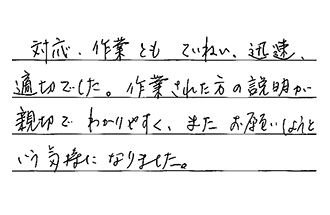 対応、作業とも ていねい、迅速、
適切でした。作業された方の説明が
親切で わかりやすく、また お願いしようと
いう気持になりました。